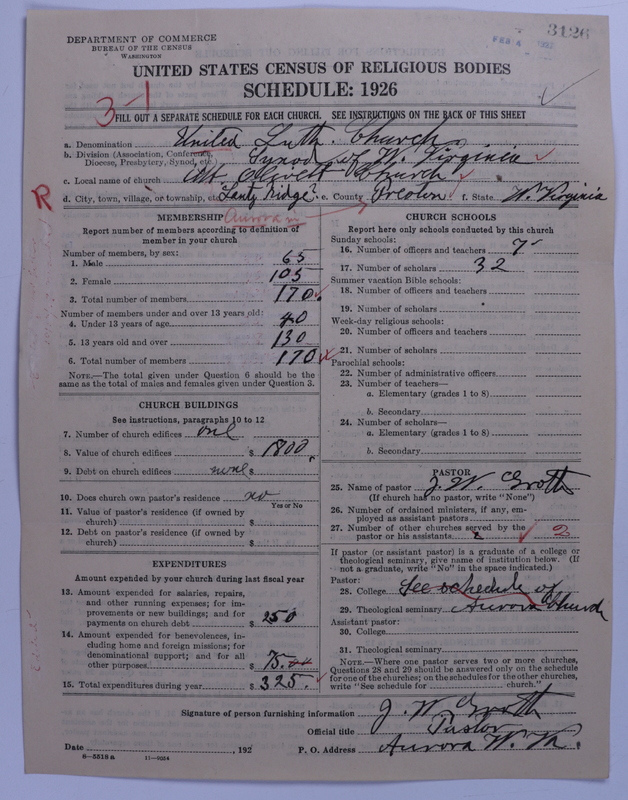 3126
DEPARTMENT OF COMMERCE
BUREAU OF THE CENSUS
WASHINGTON
UNITED STATES CENSUS OF RELIGIOUS BODIES
SCHEDULE: 1926
3-1
FILL OUT A SEPARATE SCHEDULE FOR EACH CHURCH. SEE INSTRUCTIONS ON THE BACK OF THIS SHEET
a. Denomination United Luth. Church
b. Division (Association, Conference, Diocese, Presbytery, Synod, etc.) Synod of W. Virginia
c. Local name of church Mt Olivett Church
R d. City, town, village, or township, etc. Lantz Ridge? e. County Preston f. State W. Virginia
Aurora
MEMBERSHIP
Report number of members according to definition of
member in your church
Number of members, by sex:
1. Male 65
2. Female 105
3. Total number of members 170
Number of members under and over 13 years old:
4. Under 13 years of age 40
5. 13 years old and over 130
6. Total number of members 170
NOTE.—The total given under Question 6 should be the
same as the total of males and females given under Question 3.
CHURCH BUILDINGS
See instructions, paragraphs 10 to 12
7. Number of church edifices one
8. Value of church edifices $ 1800.
9. Debt on church edifices none $
10. Does church own pastor's residence no
Yes or No
11. Value of pastor's residence (if owned by
church) $
12. Debt on pastor's residence (if owned by
church) $
EXPENDITURES
Amount expended by your church during last fiscal year
13. Amount expended for salaries, repairs,
and other running expenses; for im-
provements or new buildings; and for
payments on church debt $ 250
14. Amount expended for benevolences, in-
cluding home and foreign missions; for
denominational support; and for all
other purposes $ 75.
15. Total expenditures during year $ 325.
CHURCH SCHOOLS
Report here only schools conducted by this church
Sunday schools:
16. Number of officers and teachers 7
17. Number of scholars 32
Summer vacation Bible schools:
18. Number of officers and teachers
19. Number of scholars
Week-day religious schools:
20. Number of officers and teachers
21. Number of scholars
Parochial schools:
22. Number of administrative officers
23. Number of teachers—
a. Elementary (grades 1 to 8)
b. Secondary
24. Number of scholars—
a. Elementary (grades 1 to 8)
b. Secondary
PASTOR
25. Name of pastor J. W. Groth
(If church has no pastor, write "None")
26. Number of ordained ministers, if any, em-
ployed as assistant pastors
27. Number of other churches served by the
pastor or his assistants 2 2
If pastor (or assistant pastor) is a graduate of a college or
theological seminary, give name of institution below. (If
not a graduate, write "No" in the space indicated.)
Pastor:
28. College See schedule of
29. Theological seminary Aurora Church
Assistant pastor:
30. College
31. Theological seminary
NOTE.—Where one pastor serves two or more churches,
Questions 28 and 29 should be answered only on the schedule
for one of the churches; on the schedules for the other churches,
write "See schedule for church."
Signature of person furnishing information J. W. Groth
Official title Pastor
Date , 192 P. O. Address Aurora W. Va.
8-5518 a 11-9254